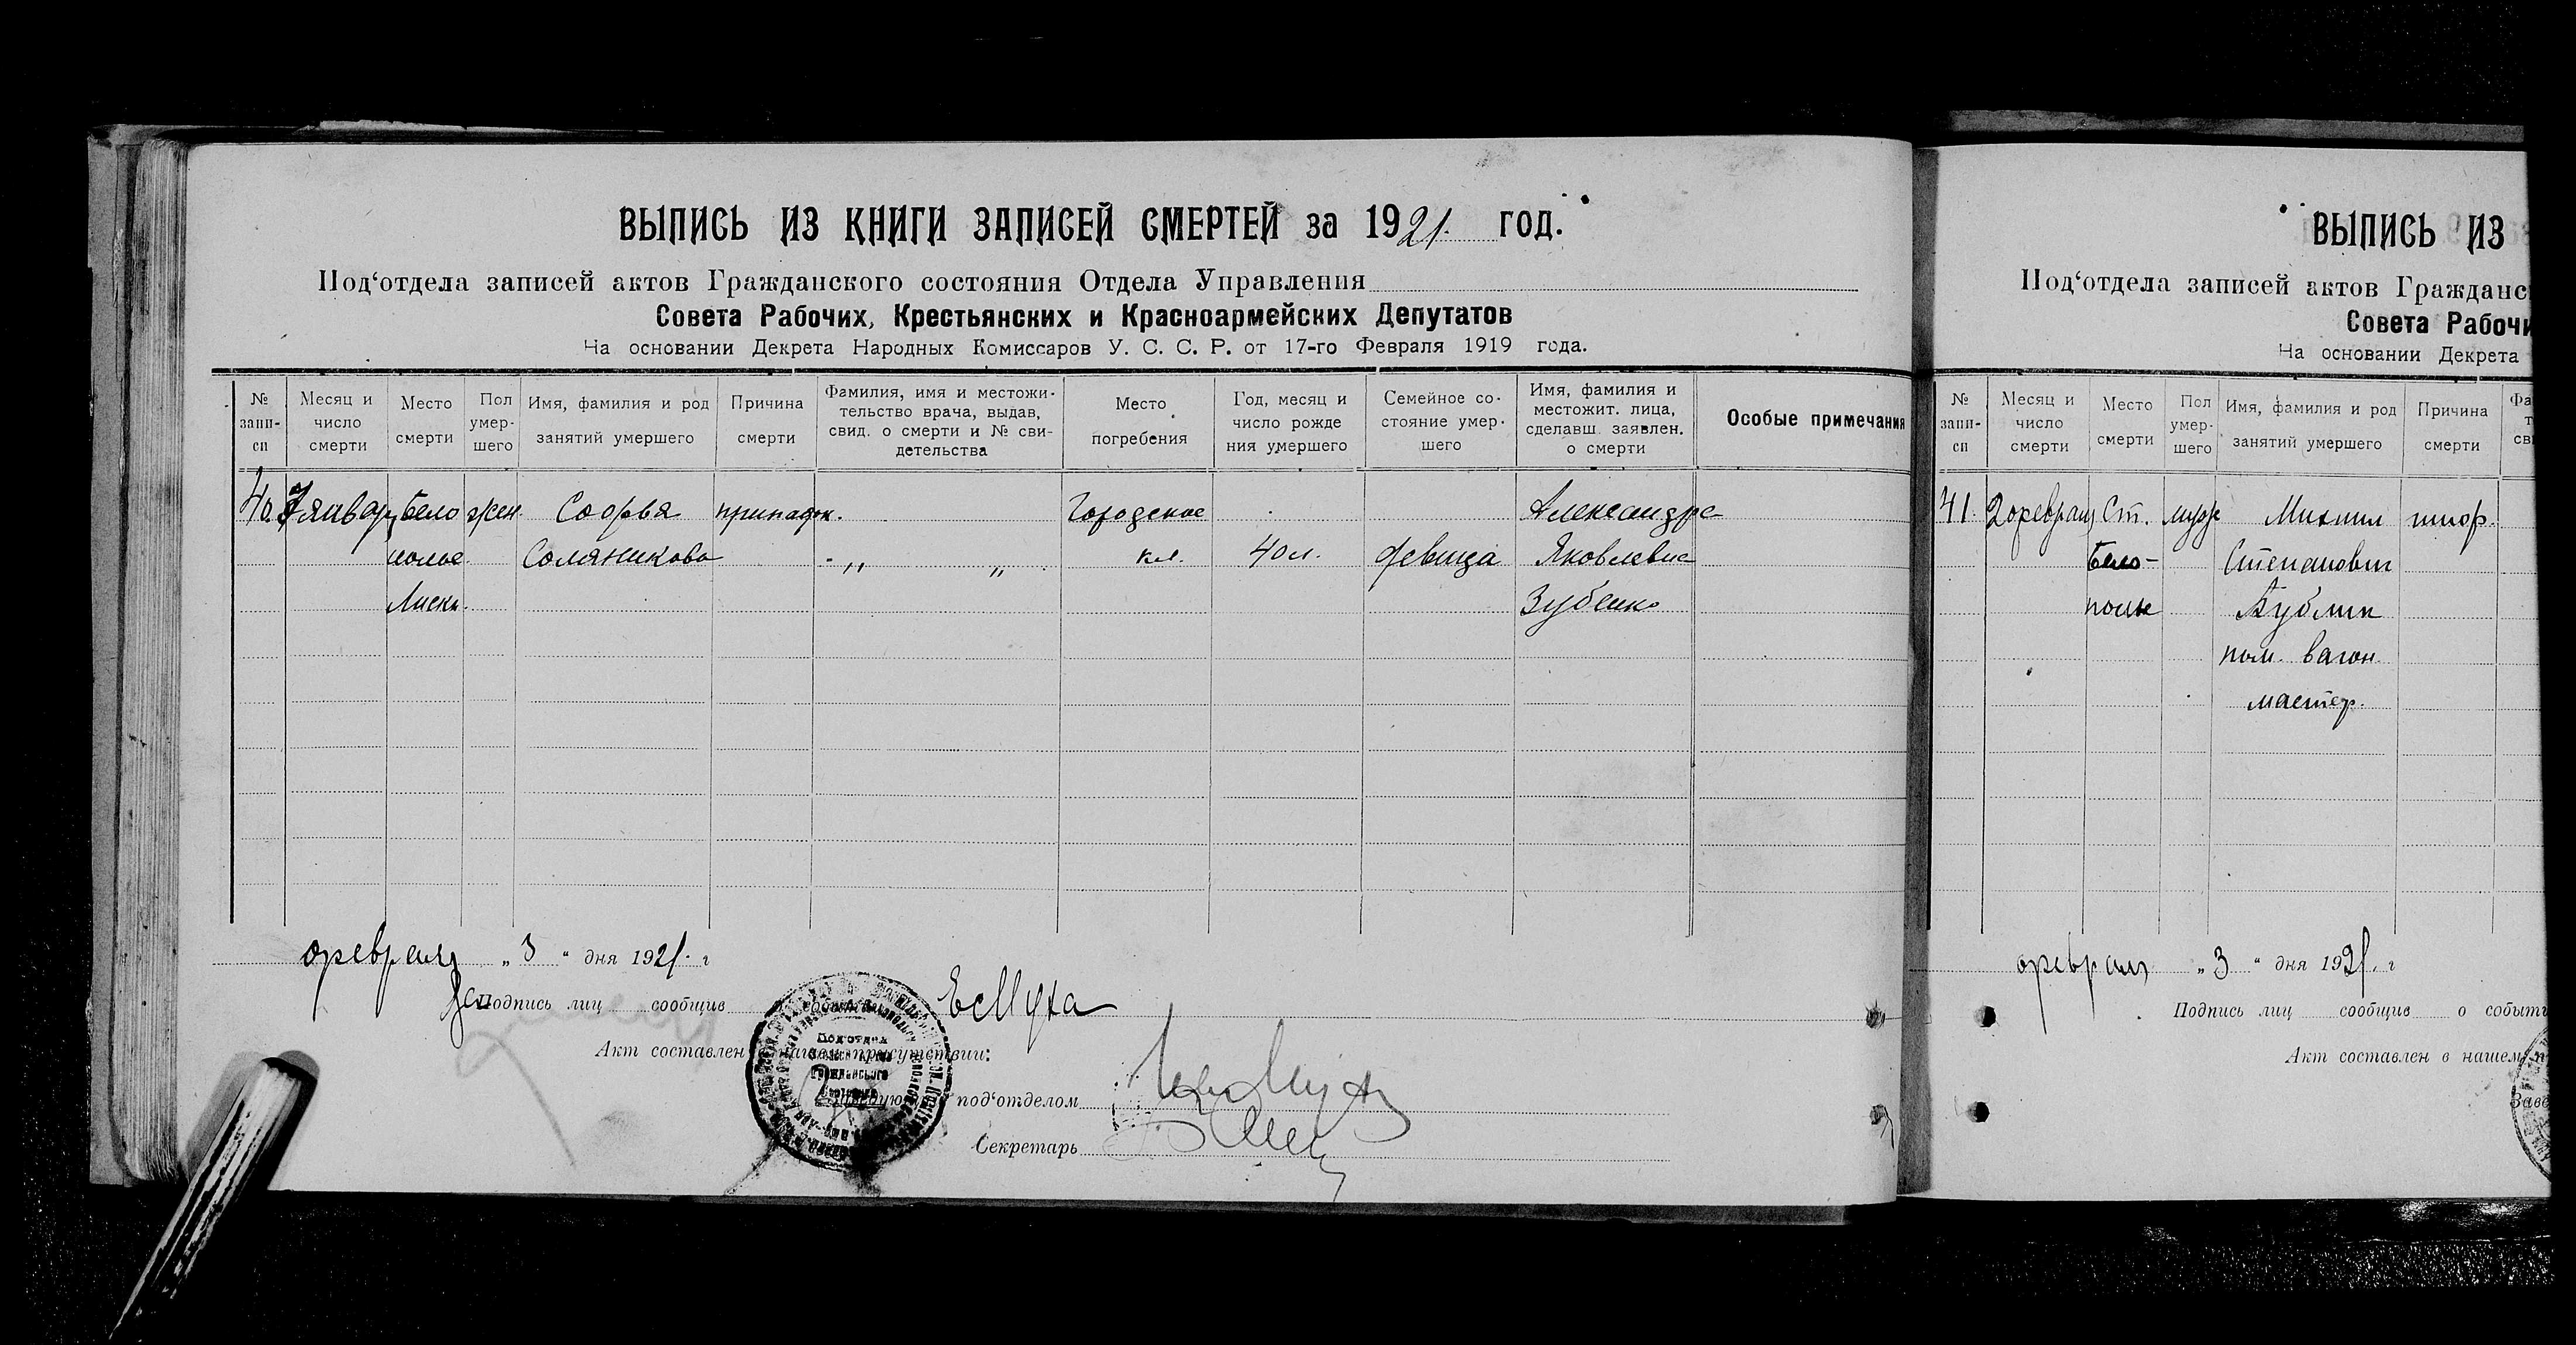 ВЫПИСЬ ИЗ КНИГИ ЗАПИСЕЙ СМЕРТЕЙ за 1921. год.
Под‘отдела записей актов Гражданского состояния Отдела Управления
Совета Рабочих, Крестьянских и Красноармейских Депутатов
На основании Декрета Народных Комиссаров У. С. С. Р. от 17-го Февраля 1919 года.
№ запи-си
Месяц и число смерти
Место смерти
Пол умер-шего
Имя, фамилия и род занятий умершего
Причина смерти
Фамилия, имя и местожи-тельство врача, выдав, свид. о смерти и № сви-детельства
Место погребения
Год, месяц и число рожде ния умершего
Семейное со-стояние умер-шего
Имя, фамилия и местожит. лица, сделавш. заявлен. о смерти
Особые примечания
40. 7 января Бело жен. Софья припадк. Городское Александра
полье Соляникова „ „ кл. 40 л. девица Яковлевна
Зубенко
февраля „3“ дня 1921. г
Подпись лиц сообщив
ЕсМуха
Акт составлен в нашем присутствии:
под‘отделом
Секретарь
ВЫПИСЬ ИЗ
Под‘отдела записей актов Гражданс
Совета Рабочи
На основании Декрета
№ запи-си
Месяц и число смерти
Место смерти
Пол умер-шего
Имя, фамилия и род занятий умершего
Причина смерти
41. 2 февраля Ст. муж Михаил тиф.
Бело- Степанович
полье Бублик
пом. вагон
мастер.
февраля „3“ дня 1921. г
Подпись лиц сообщив о событи
Акт составлен в нашем п
Заве